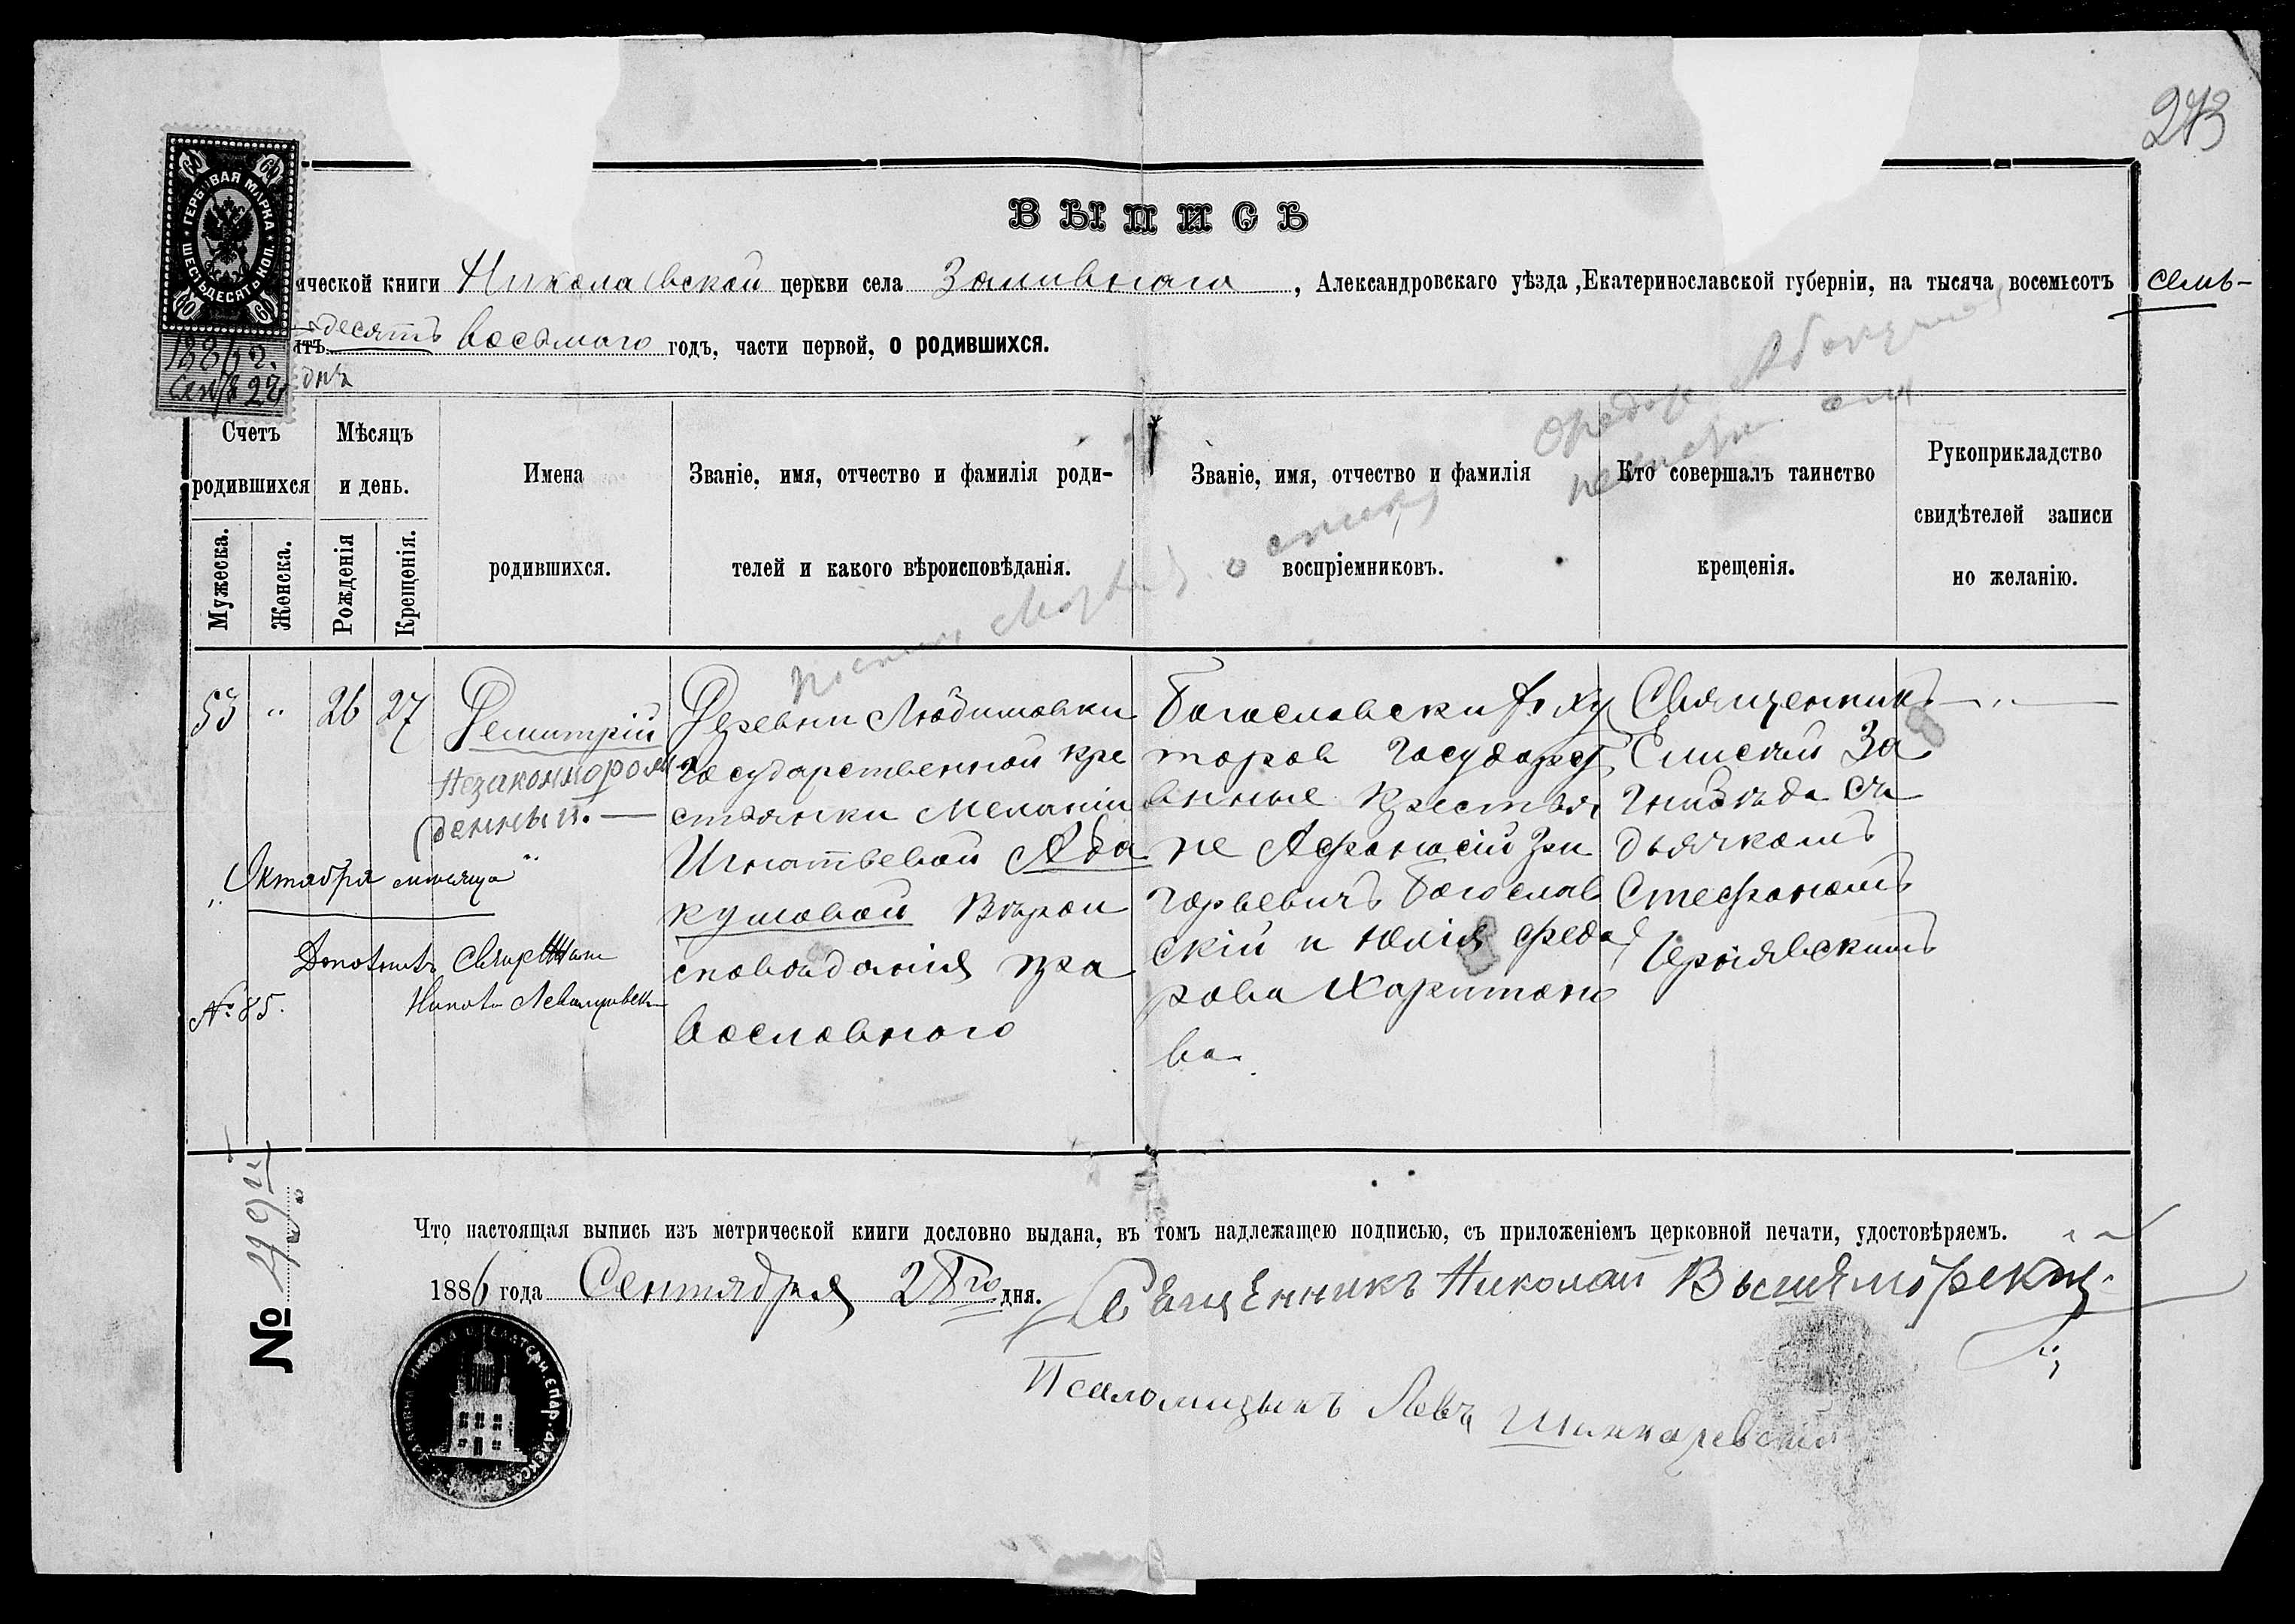 273
ГЕРБОВАЯ МАРКА
ШЕСТЬДЕСЯТЪ КОП.
60 60
60 60
188 г.
Сент. 22
дня
ВЫПИСЬ
ической книги Николаевской церкви села Заливнаго, Александровскаго уѣзда, Екатеринославской губерніи, на тысяча восемьсотъ семь-
десятъ восьмаго годъ, части первой, о родившихся.
Счетъ родившихся
Мужеска.
Женска.
Мѣсяцъ и день.
Рожденія
Крещенія.
Имена родившихся.
Званіе, имя, отчество и фамилія роди-
телей и какого вѣроисповѣданія.
Званіе, имя, отчество и фамилія
воспріемниковъ.
Кто совершалъ таинство
крещенія.
Рукоприкладство
свидѣтелей записи
по желанію.
53 „ 26 27
Демитрій
Незаконнорож
денный. —
„Октября месяца„
№ 85.
Деревни Любимовки
Государственной кре
стьянки Меланіи
Игнатьевой Ава
кумовой Вѣрои
сповѣданія пра
вославного
Богословских ху
торов Государст
венные крестья
не Афанасій Гри
горьевичъ Богослав
скій и Юлія Федо
рова Харитоно
ва.
Священникъ — „ —
Елисей За
гнибѣда съ
дьячкомъ
Стефаномъ
Чернявскимъ
Что настоящая выпись изъ метрической книги дословно выдана, въ томъ надлежащею подписью, съ приложеніемъ церковной печати, удостовѣряемъ.
1886 года Сентября 28го дня.
Священникъ Николай
Псаломщикъ Левъ Шинкаревскій
№